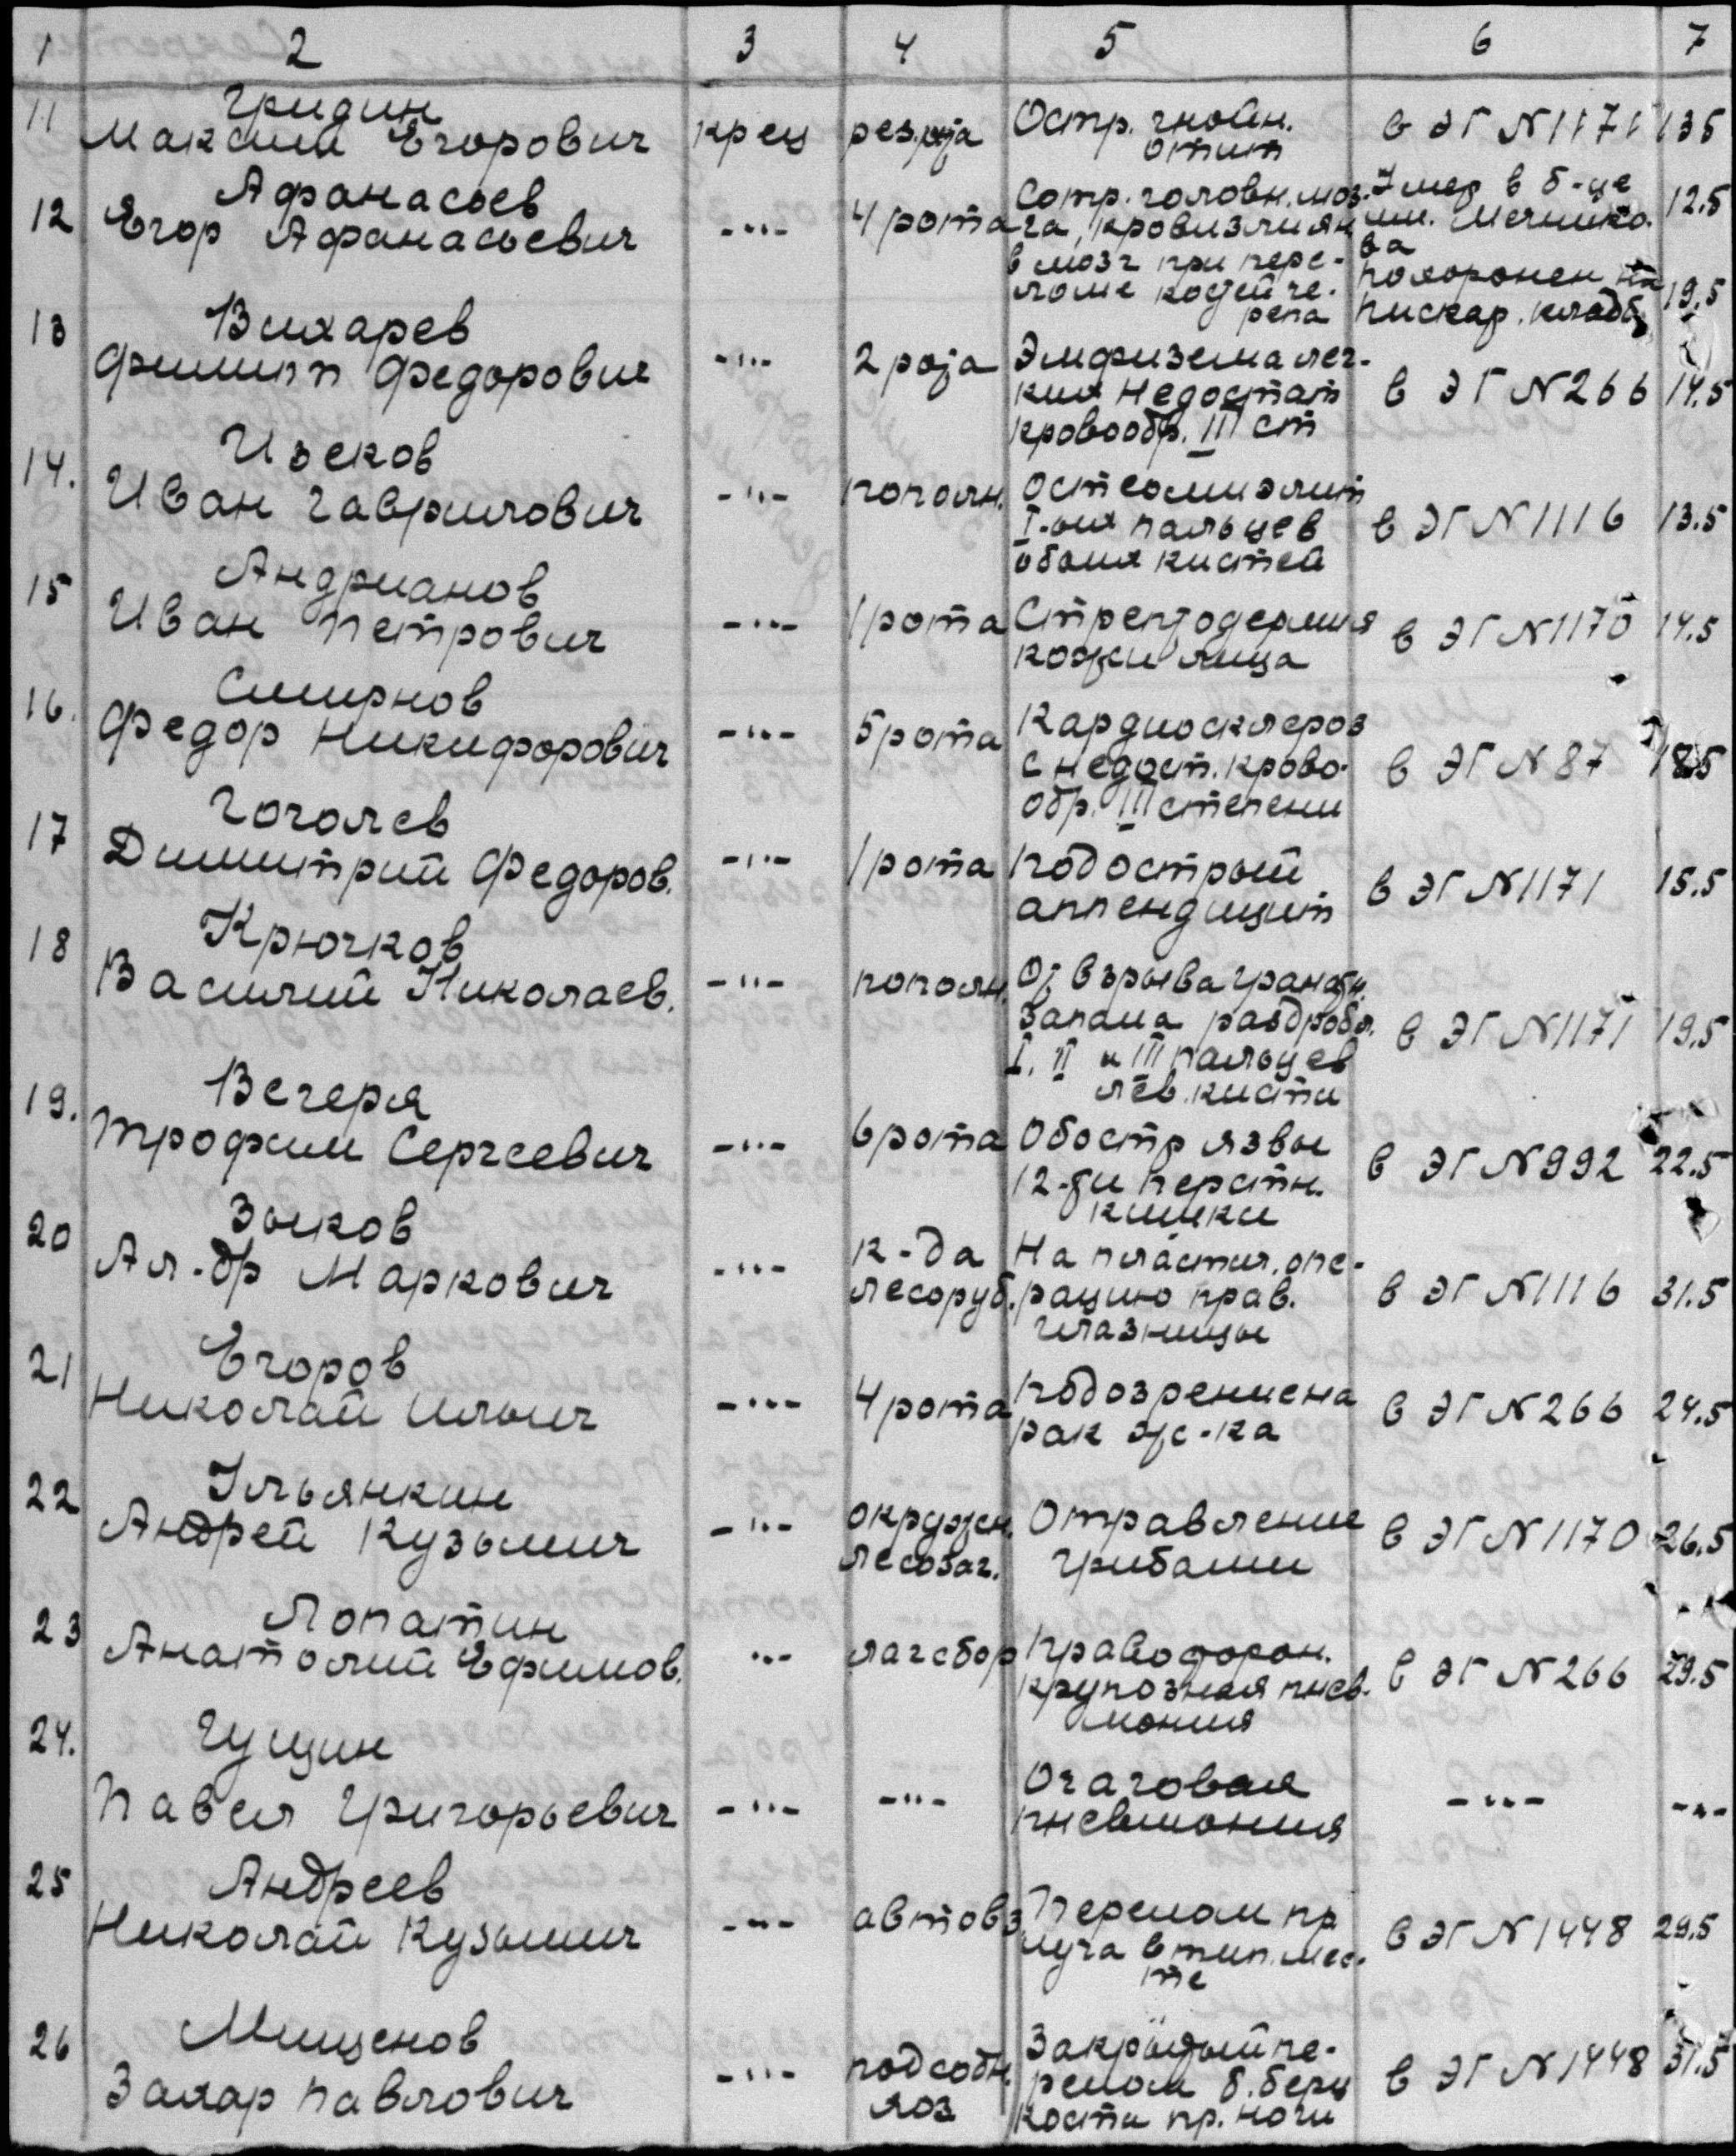 1 2 3 4 5 6 7
11 Гридин
Максим Егорович крец рез.рота Остр. гнойн. в ЭГ N1171 13.5
отит
12 Афанасьев
Егор Афанасьевич -"- 4 рота Сотр. головн. моз- Умер в б-це 12.5
га, кровоизлиян им. Мечнико-
в мозг при пере- ва
ломе костей че- похоронен на 19.5
репа Пискар. кладб
13 Вихарев
Филипп Федорович -"- 2 рота Эмфизема лег-
ких Недостат в ЭГ N266 14.5
кровообр. III ст
14. Изеков
Иван Гаврилович -"- пополн. Остеомиэлит
I-ых пальцев в ЭГ N1116 13.5
обоих кистей
15 Андрианов
Иван Петрович -"- 1 рота Стрептодермия в ЭГ N1170 14.5
кожи лица
16. Смирнов
Федор Никифорович -"- 5 рота Кардиосклероз
с недост. крово- в ЭГ N87 18.5
обр. III степени
17 Гоголев
Димитрий Федоров. -"- 1 рота Подострый в ЭГ N1171 15.5
аппендицит
18 Крючков
Василий Николаев. -"- пополн. От взрыва гранатн.
запала раздробл. в ЭГ N1171 19.5
I, II и III пальцев
лев. кисти
19. Вечеря
Трофим Сергеевич -"- 6 рота Обостр язвы
12-ти перстн. в ЭГ N992 22.5
кишки
20 Зыков
Ал-др Маркович -"- к-да На пластич. опе-
лесоруб. рацию прав. в ЭГ N1116 31.5
глазницы
21 Егоров
Николай Ильич -"- 4 рота Подозрение на в ЭГ N266 24.5
рак ж-ка
22 Ульянкин
Андрей Кузьмич -"- окружн. Отравление в ЭГ N1170 26.5
лесозаг. грибами
23 Лопатин
Анатолий Ефимов. -"- лагсбор Правосторон.
крупозная пнев- в ЭГ N266 29.5
мония
24. Гущин
Павел Григорьевич -"- -"- Очаговая -"- -"-
пневмония
25 Андреев
Николай Кузьмич -"- автовз Перелом пр
луча в тип. мес- в ЭГ N1448 29.5
те
26 Мищенов
Захар Павлович -"- подсобн. Закрытый пе-
хоз релом б.берц в ЭГ N1448 31.5
кости пр. ноги